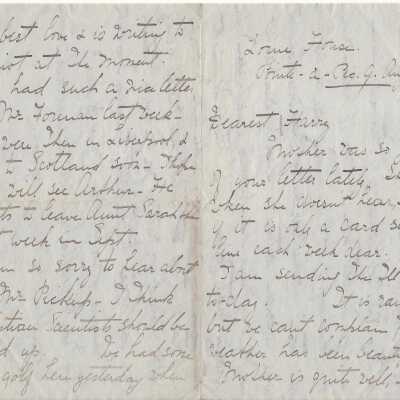 best love & is writing to
not at the moment.
had such a nice letter
Mr Forman last week -
were then in Liverpool, &
to Scotland soon - I hope
will see Arthur - He
ts to leave Aunt Sarah
t week in Sept.
so sorry to hear about
Mr. Pickup - I think
Scientists should be
d up. We had some
golf here yesterday when
Lorne House.
Port-a-
Dearest Harry
Mother was so
your letter lately.
when she doesn't hear,
if it is only a card se
line each week dear.
I am sending the Ill
to-day. It is rai
but we can't complain
weather has been beaut
Mother is quite well,